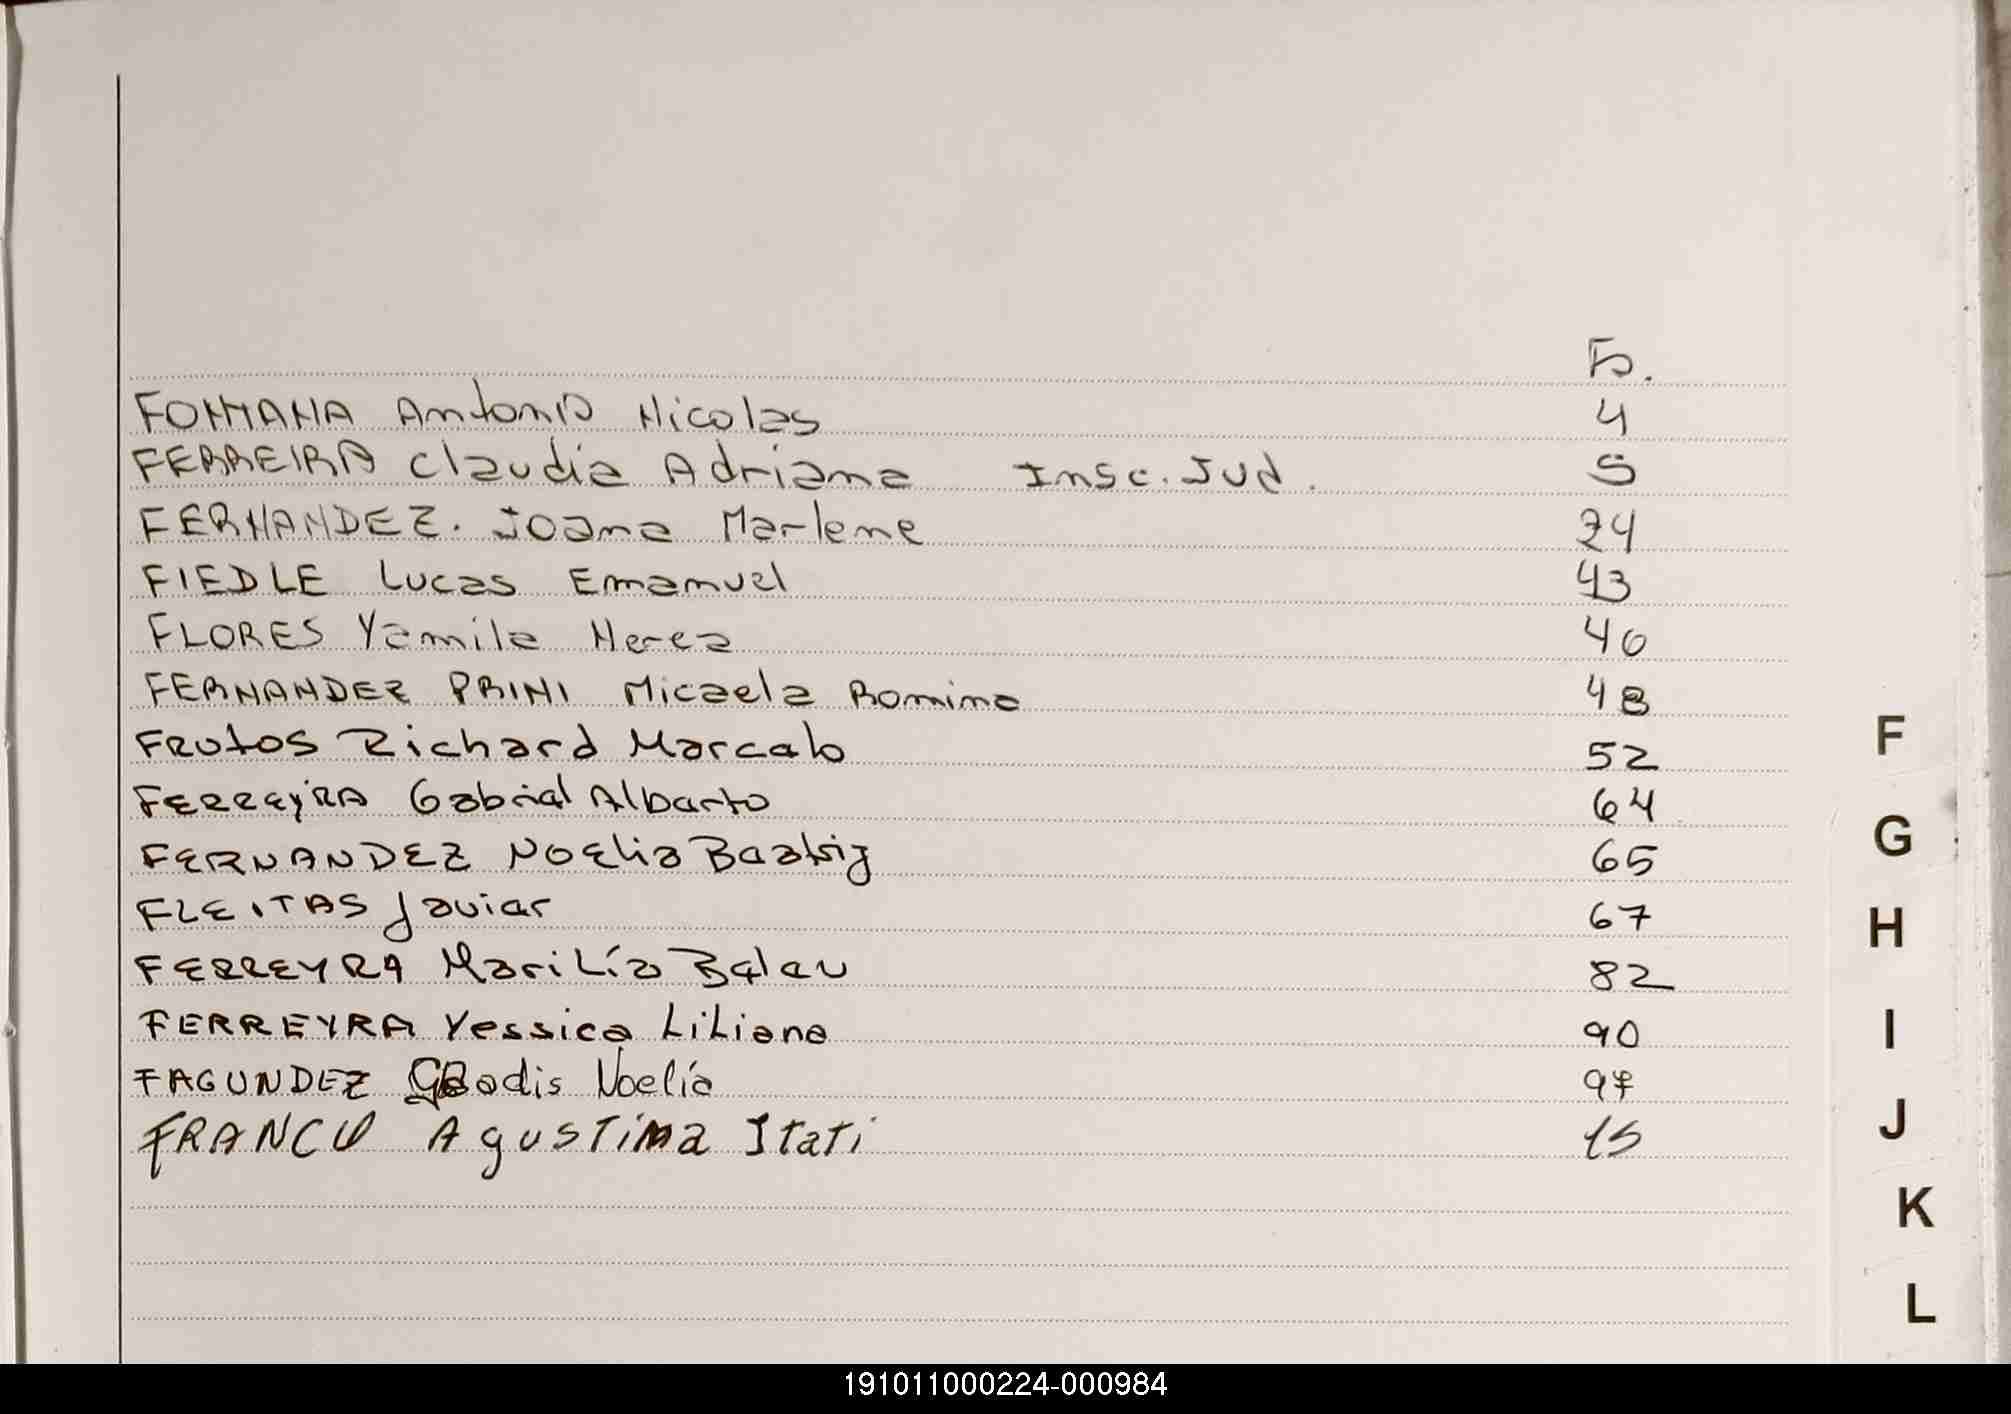 Fo.
FONTANA Antonio Nicolas 4
FERREIRA Claudia Adriana Insc. Jud. 5
FERNANDEZ. Joana Marlene 24
FIEDLE Lucas Emanuel 43
FLORES Yamila Nerea 46
FERNANDEZ PRINI Micaela Romina 48
FRUTOS Richard Marcelo 52
FERREYRA Gabriel Alberto 64
FERNANDEZ NOELIA Beatriz 65
FLEITAS Javier 67
FERREYRA Marilía Belen 82
FERREYRA Yessica Liliana 90
FAGUNDEZ Noelia 97
FRANCO Agustina Itati 15
F
G
H
I
J
K
L
191011000224-000984